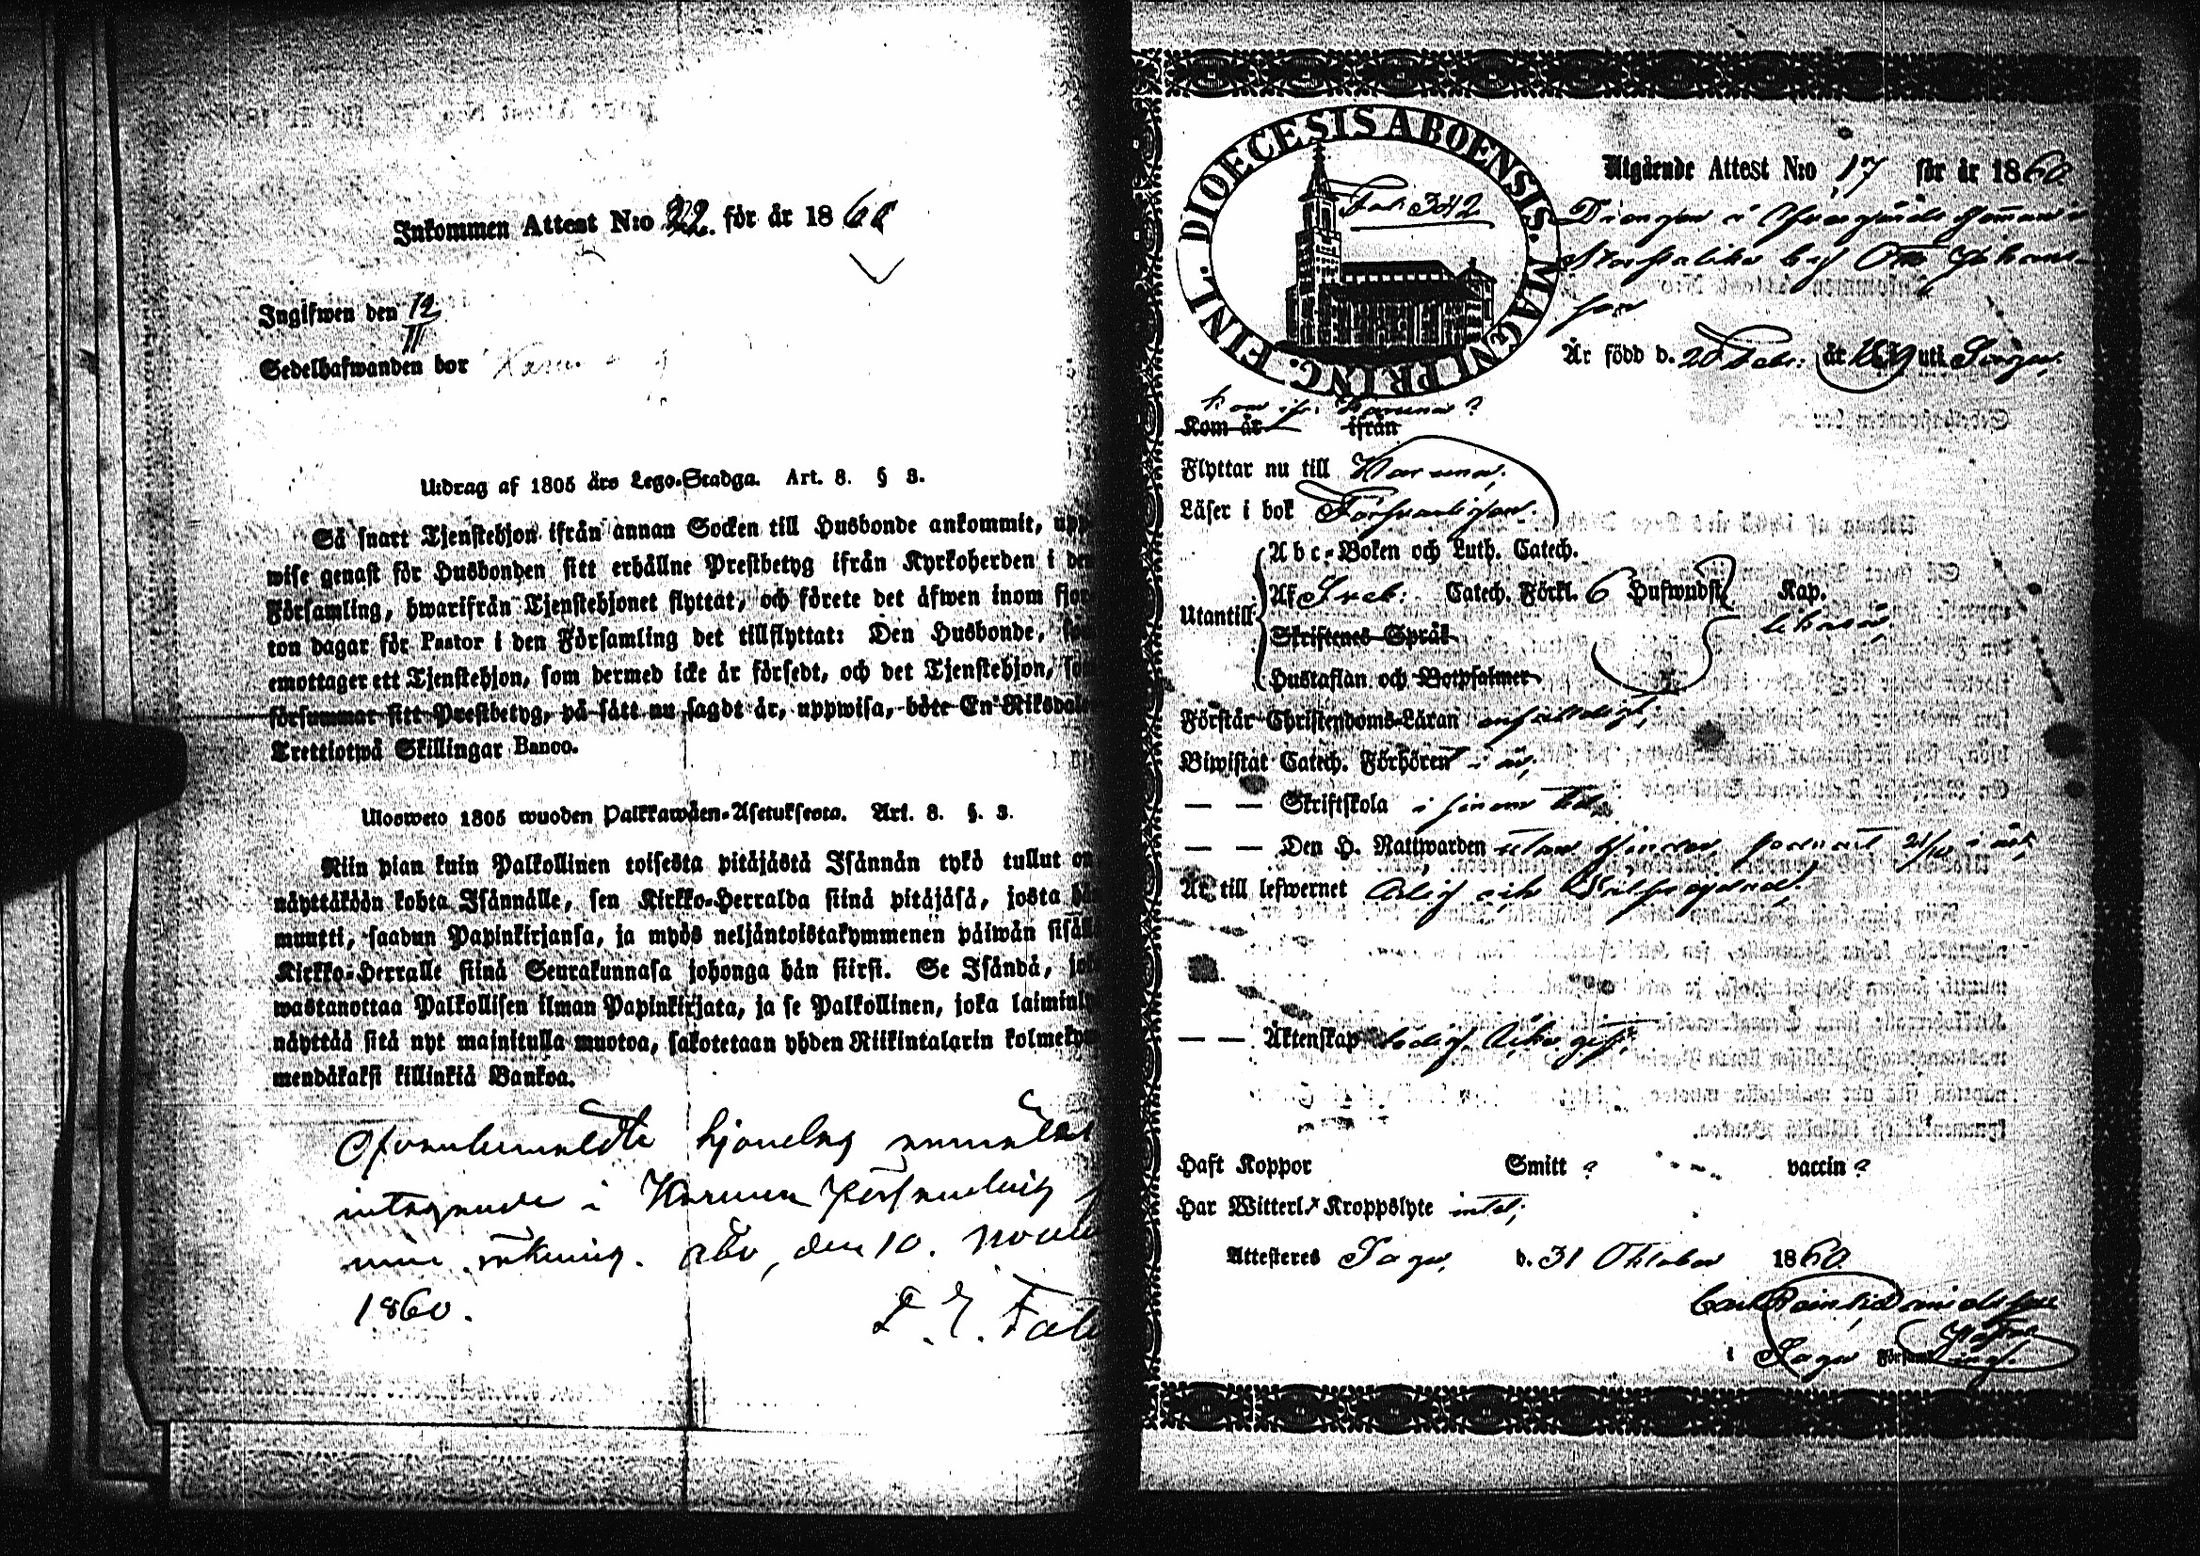 Inkommen Attest N:o 22. för år 1860
Ingifwen den 12/11
Sedelhafwanden bor
Utdrag af 1805 års Lego-Stadga. Art. 8. § 3.
Så snart Tjenstehjon ifrån annan Socken till Husbonde ankommit, upp
wise genast för Husbonden sitt erhållne Prestbetyg ifrån Kyrkoherden i den
Församling, hwarifrån Tjenstehjonet flyttat, och förete det äfwen inom fjor
ton dagar för Pastor i den Församling det tillflyttat: Den Husbonde, som
emottager ett Tjenstehjon, som dermed icke är försedt, och det Tjenstehjon, som
försummar sitt Prestbetyg, på sätt nu sagdt är, uppwisa, böte En Riksdaler
Trettiotwå Skillingar Banco.
Ulosweto 1805 wuoden Palkkawäen-Asetuksesta. Art. 8. §. 3.
Niin pian kuin Palkollinen toisesta pitäjästä Isännän tykö tullut on
näyttäköön kohta Isännälle, sen Kirkko-Herralda siinä pitäjäsä, josta hän
muutti, saadun Papinkirjansa, ja myös neljäntoistakymmenen päiwän sisällä
Kirkko-Herralle siinä Seurakunnasa johonga hän siirsi. Se Isändä, joka
wastanottaa Palkollisen ilman Papinkirjata, ja se Palkollinen, joka laiminly
näyttää sitä nyt mainitulla muotoa, sakotetaan yhden Riikintalarin kolmekym
mendäkaksi killinkiä Bankoa.
Ofvanbemäldte hjonelag anmäles
intagande i Karuna Församling
min räkning. Åbo, den 10. Novemb
1860.
DIOECESIS ABOENSIS. MAGNI PRINC. FINL.
Fol. 342
Utgående Attest N:o 17 för år 1860
Drengen
Otto Johans
son
Är född d. 20 Febr: år 1839 uti Sagu.
Kom år ifrån
Flyttar nu till Karuna,
Läser i bok Försvarligen.
Utantill:
Abc-Boken och Luth. Catech.
Af Sveb: Catech. Förkl. 6 Hufwudst. Kap.
Skriftenes Språk
Hustaflan och Botpsalmer
Förstår Christendoms-Läran
Biwistat Catech. Förhören i år,
— — Skriftskola i sinom tid.
— — Den H. Nattwarden utan hinder, senast 21/10 i år,
Är till lefwernet Ärlig och
— — Äktenskap ledig Icke gift,
Haft Koppor Smitt ? vaccin ?
Har Witterl. Kroppslyte intet;
Attesteres Sagu, d. 31 Oktober 1860.
i Sagu Församl.